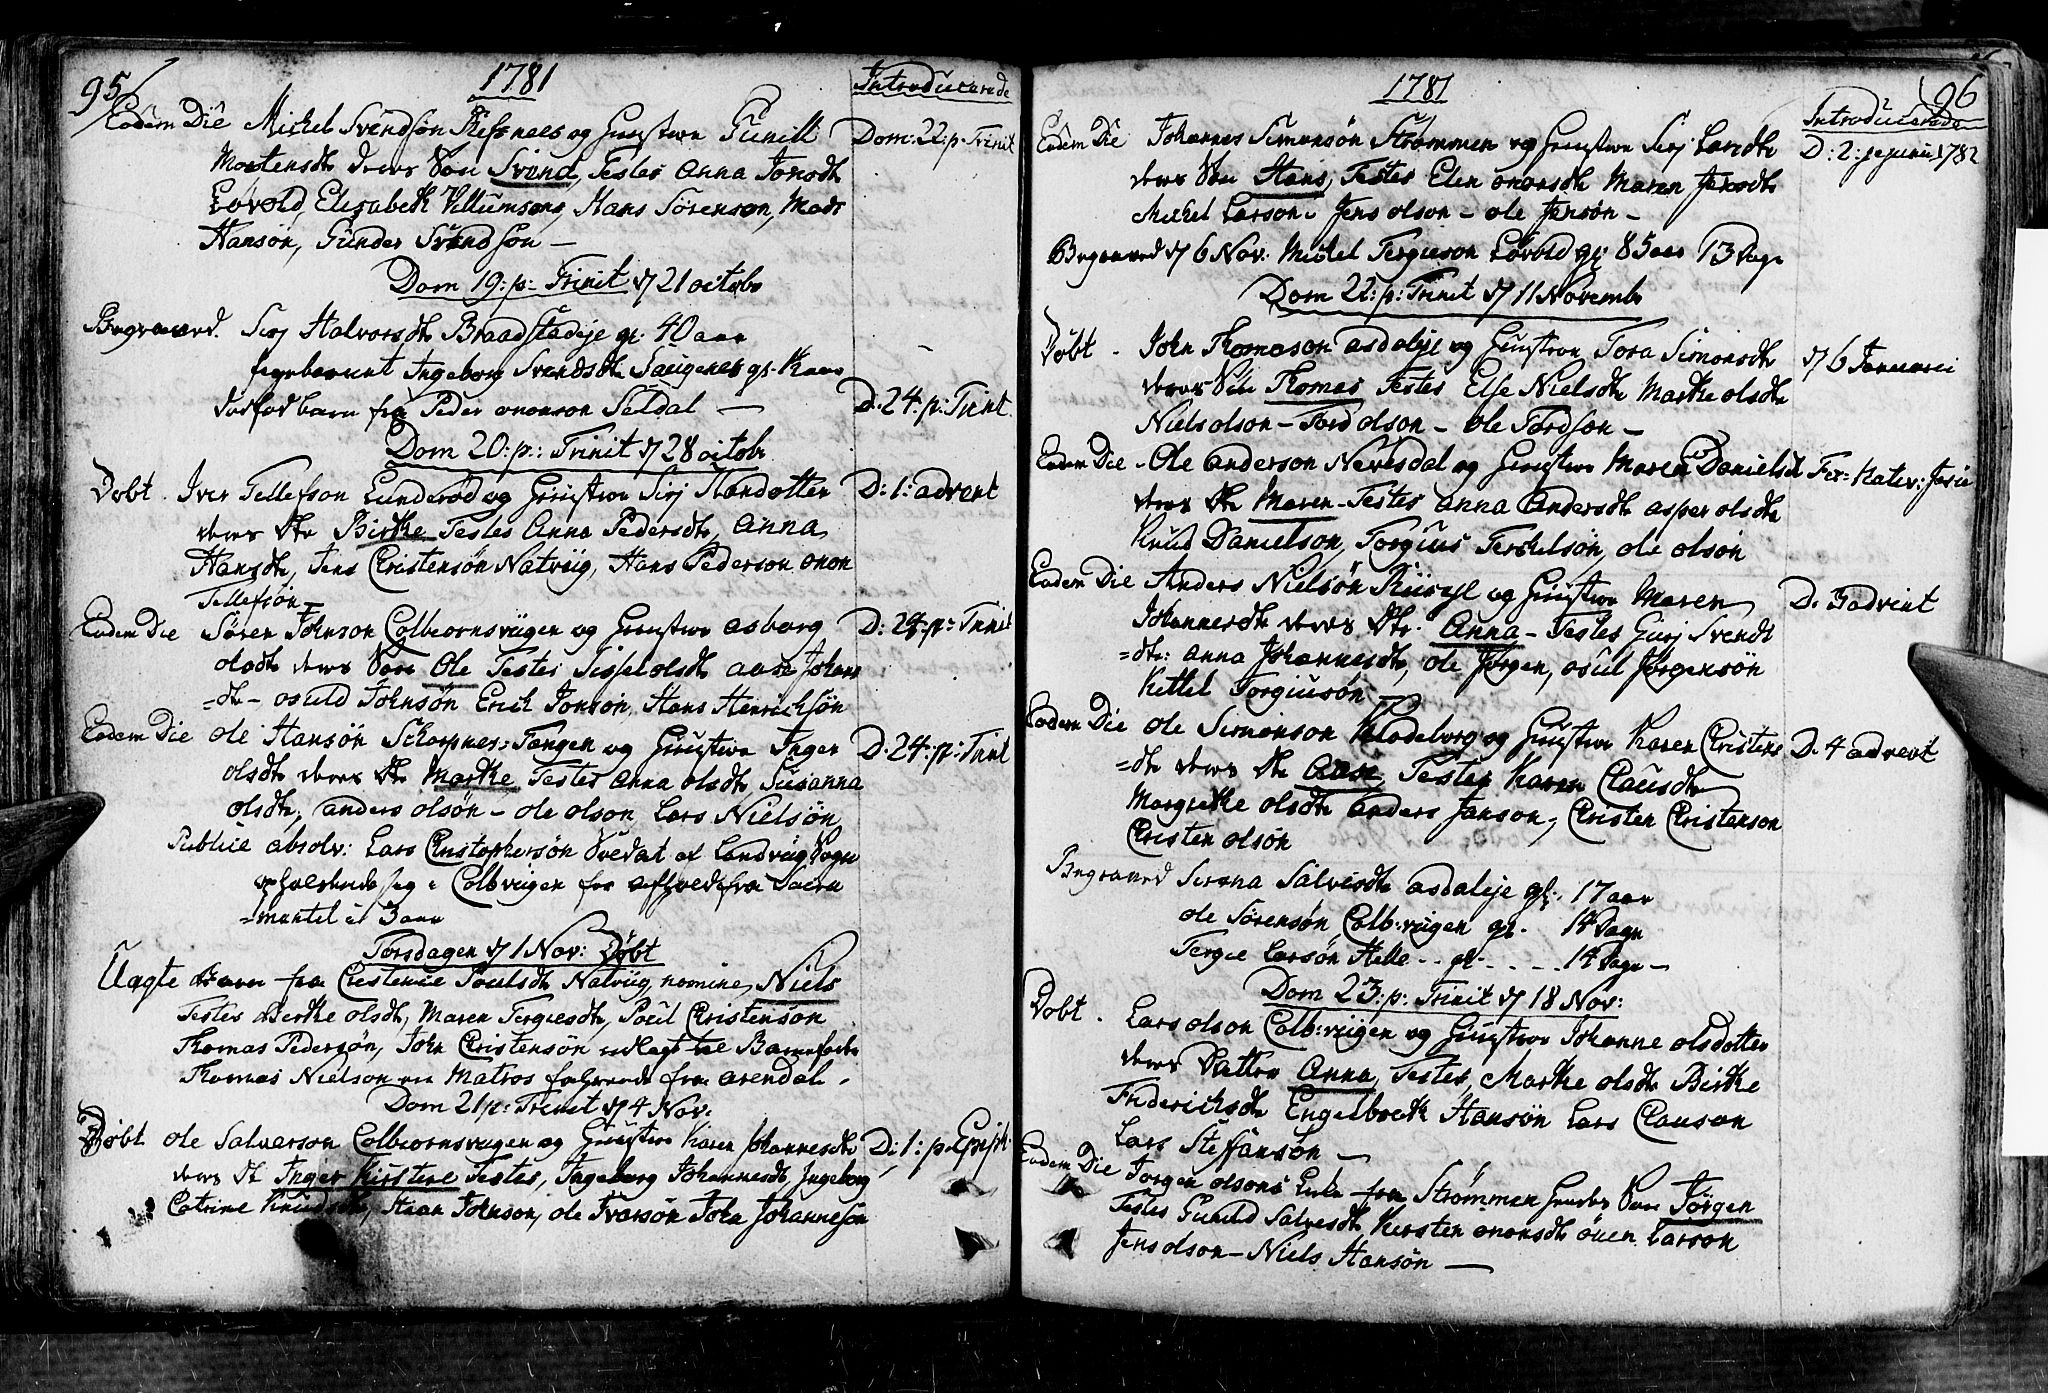 95
1781
Introducerede
Eadem Die Michel Svendsøn Refsnees og Hustrue Gunild
Dom: 22: p. Trinit
Mortensdt deres Søn Svend, Testes Anna Jonsdt
Løvold, Elisabeth Villumsens, Hans Sørenson, Mads
Hansøn, Gunder Svendsøn —
Dom 19: p: Trinit d 21 octobr
Begraved. Siri Halvorsdt Braadstadeje gl: 40 aar
Ingeborg Svendsdt Laugenes gl.
dødfød barn fra Peder ononson Seldal —
D. 24: p: Trinit.
Dom 20: p:: Trinit d 28 octobr
Døbt. Iver Tellefson Lunderød og Hustrue Siri Hansdotter
D: 1: advent
deres Dtr Birthe Testes Anna Pedersdt, Anna
Hansdt, Jens Christensøn Natviig, Hans Pederson onon
Tellefsøn —
Eadem Die Søren Johnson Colbiornsviigen og Hustrue Asborg
D: 24: p: Trinit
olsdt deres Søn Ole Testes Sissel olsdt Aase Johans
=dt – osuld Johnsøn Erich Jonsøn, Hans Henrichsøn
Eadem Die ole Hansøn Scharpnes: Tangen og Hustrue Inger
D. 24: p: Trinit
olsdt deres Dtr Marthe Testes Anna olsdt Susanna
olsdt, anders olsøn – ole olson, Lars Nielsøn
Publice absolv: Lars Christophersøn Svedat af Landviig Sogn
opholdende sig i Colbviigen for afholdt fra Sacra
=mentet i 3 aar
Torsdagen d 1 Nov: Døbt
Uægte Barn fra Christence Poulsdt Natviig, nomine, Niels
Testes Berthe olsdt, Maren Tergiesdt, Poul Christensøn
Thomas Pedersøn, John Christensøn udlagt til Barnefader
Thomas Nielson en Matros farende fra Arendal.
Dom 21 p: Trinit d 4 Nov:
Døbt ole Salvarson Colbiornsviigen og Hustrue Karen Johannesdt
D: 1: p. Epiph.
deres Dt Inger Kirstine Testes, Ingeborg Johannesdt, Ingeborg
Catrine Knudsdt, Haan Johnson, ole Ivarsøn John Johanneson
96
1781
Introducerede
Eadem Die Johannes Simonsøn Strømmen og Hustrue Siri Larsdt
D: 2: jejunii 1782
deres Søn Hans, Testes Elen ononsdt Maren Jensdt
Michel Larson – Jens olson – ole Jensøn –
Begraved d 6 Nov. Michel Tergieson Løvold gl: 85 aar 13 Dage
Dom 22: p: Trinit d 11 Novembr
Døbt. John Thomason asdaleje og Hustrue Tora Simonsdt
d 6 Januarii
deres Søn Thomas Testes Else Nielsdt Marthe olsdt
Niels olson – Tord olson – ole Tordson –
Eadem Die – Ole Anderson Nevesdal og Hustrue Maren Danielsd
Fer: Nativ: Jesu
deres Dtr Maren – Testes anna Andersdt asper olsdt
Knud Danielson, Torgius Terchelsøn, ole olson
Eadem Die Anders Nielsøn og Hustrue Maren
D. 3 advent
Johannesdt deres Dtr. Anna – Testes Guri Svends
=dtr: anna Johannesdt, ole Jørgen, osul Jørgensøn
Kittel Torgiusøn –
Eadem Die ole Simonson Kladeborg og Hustrue Karen Christens
D. 4 advent
=dt deres Dtr Aase Testes Karen Clausdt
Margrethe olsdt anders Janson, Christen Christenson
Christen olsøn
Begraved Serena Salvesdt asdaleje gl: 17 aar
ole Sørensøn Colb:viigen gl. 14 Dage
Tergie Larsøn Helle - - gl - . . . - 14 Dage –
Dom 23: p: Trinit d 18 Nov:
Døbt. Lars olson Colb:viigen og Hustrue Johanne olsdotter
deres Datter Anna, Testes, Marthe olsdt Birthe
Friderichsdt Engelbreth Hansøn Lars Clauson
Lars Steffansøn –
Eadem Die Jørgen olsons Enke fra Strømmen hendes Søn Jørgen
Testes Gunild Salvesdt Kirsten ononsdt ouen Larson
Jens olson – Niels Hansøn —